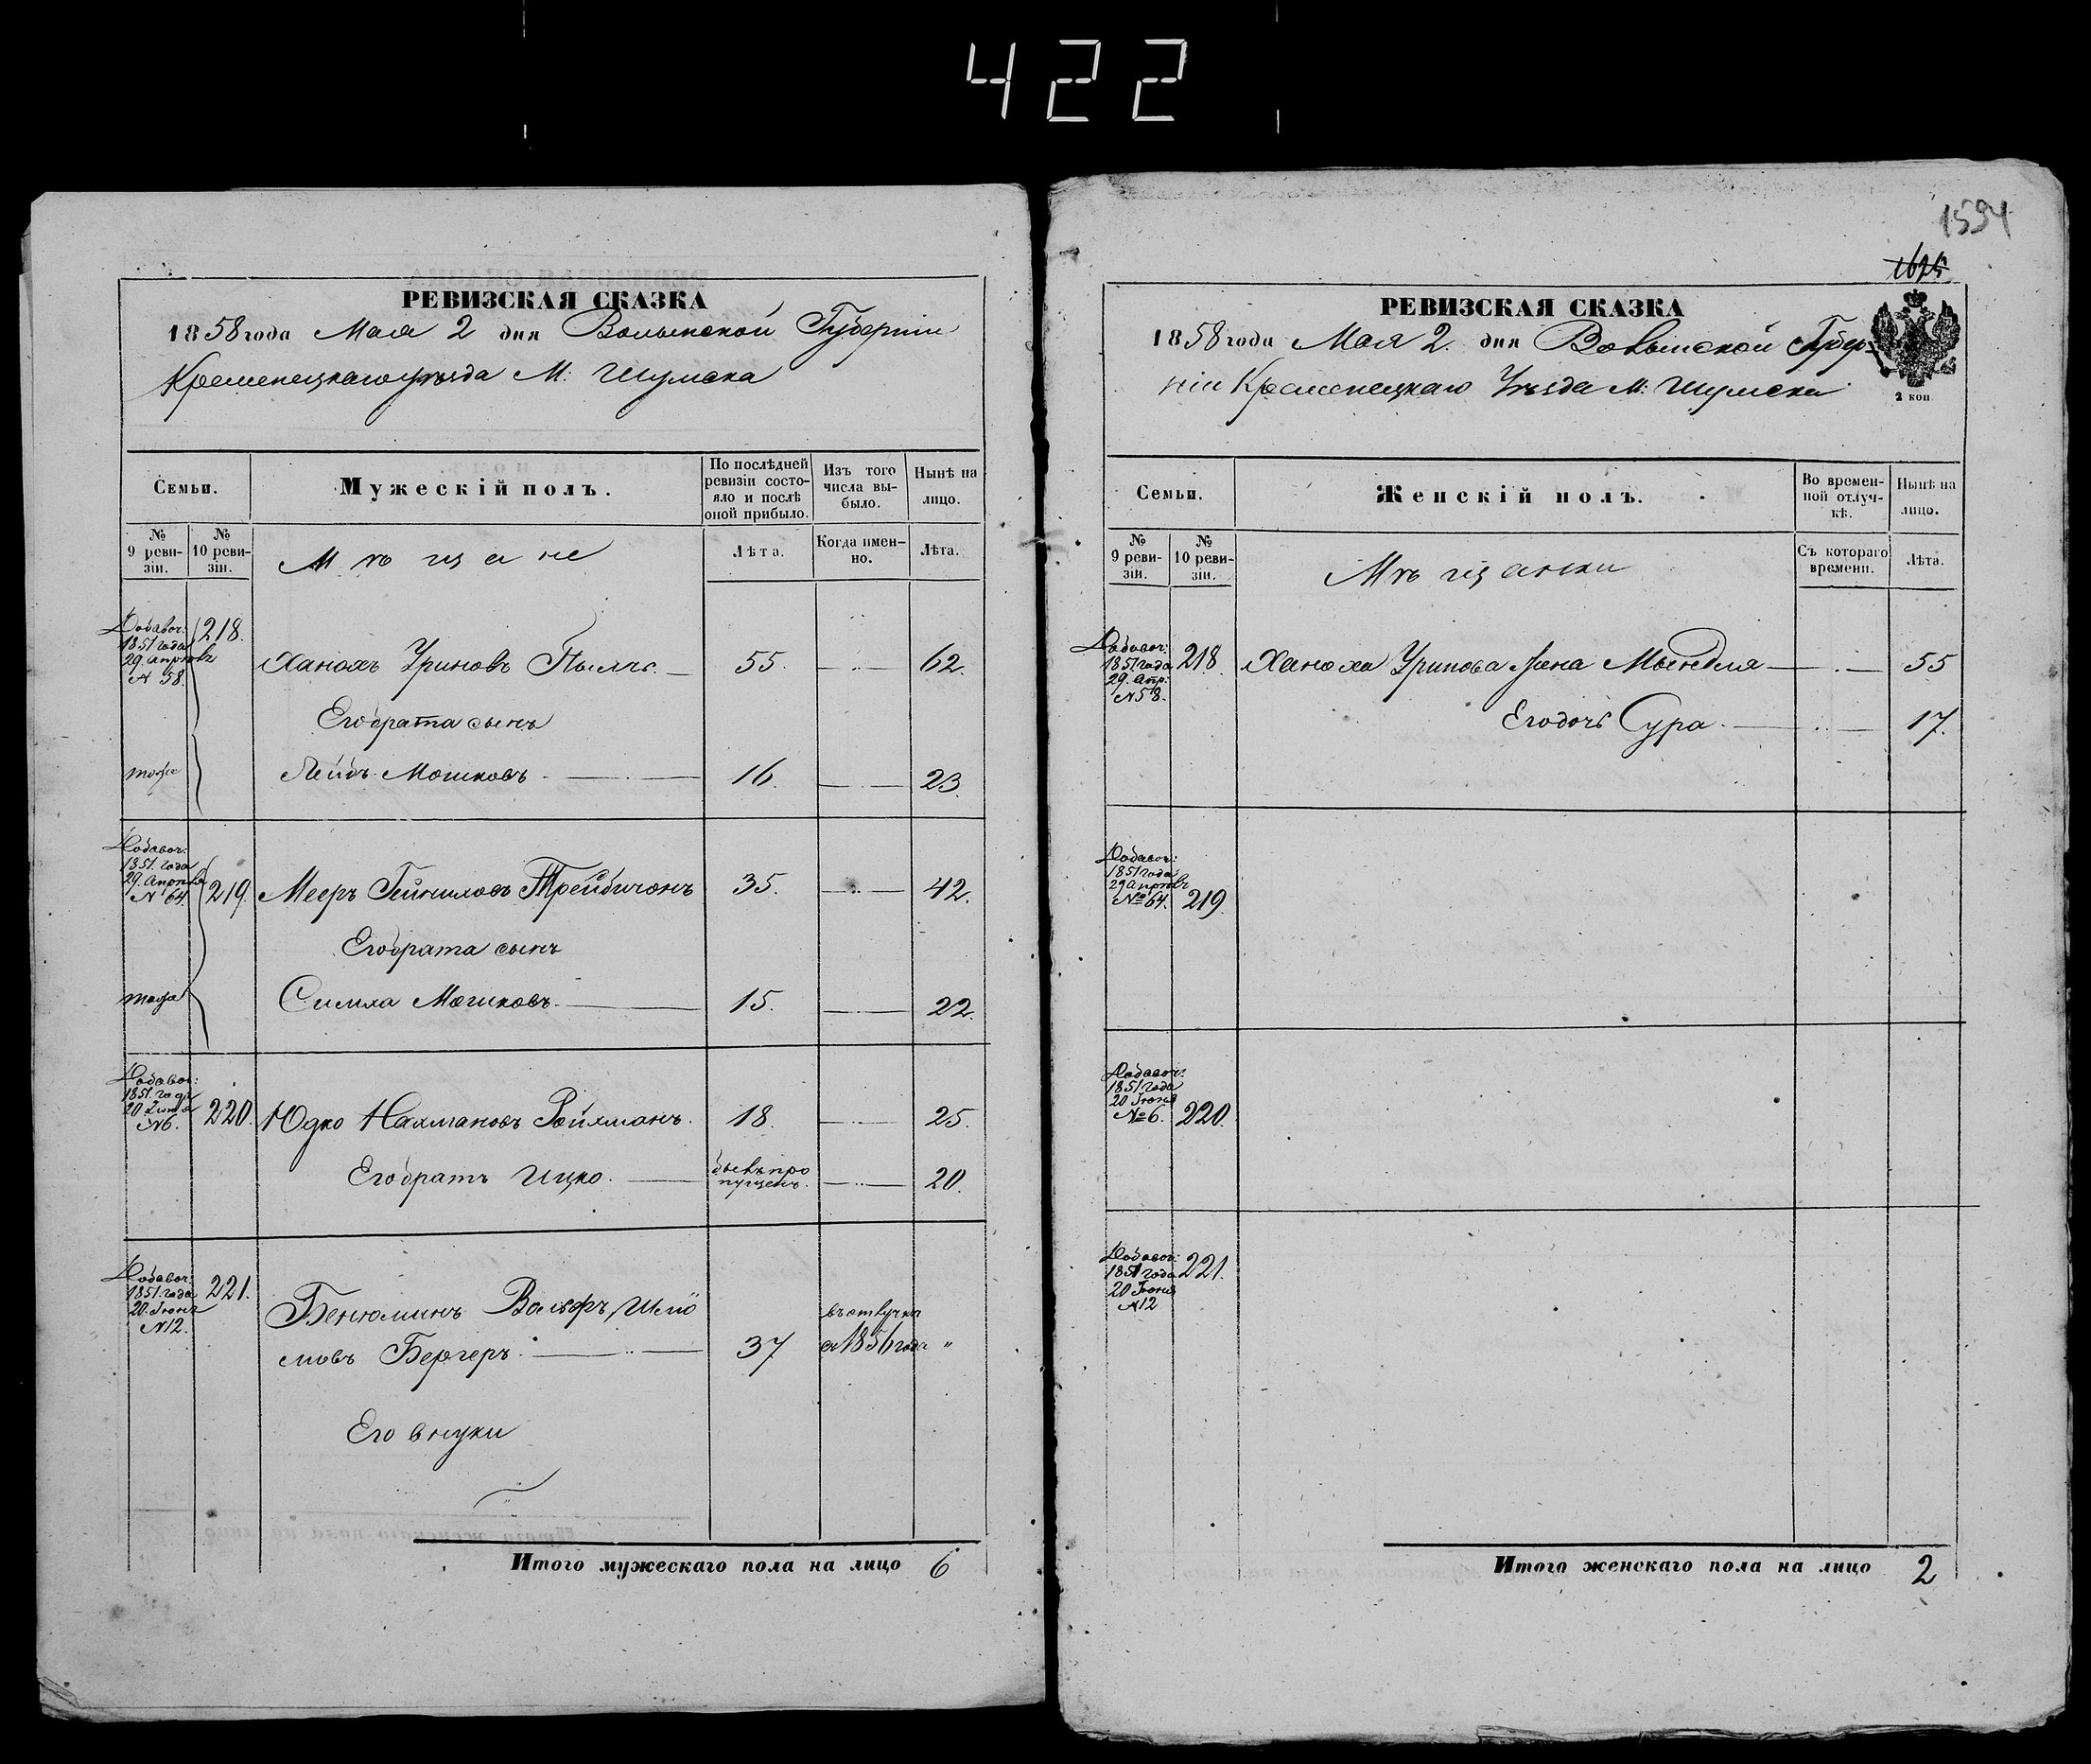 422
РЕВИЗСКАЯ СКАЗКА
1858 года Мая 2 дня Волынской Губерніи
Кременецкаго уѣзда М: Шумска
Семьи.
Мужескій полъ.
По послѣдней ревизіи состояло и послѣ оной прибыло.
Изъ того числа выбыло.
Нынѣ на лицо.
№ 9 ревизіи.
№ 10 ревизіи.
Мѣщане
Лѣта.
Когда именно.
Лѣта.
Добавоч: 1851 года 29. апрѣля № 58.
218.
Ханохъ Уриновъ 55. 62.
Его брата сынъ
тоже
Лейбъ Мошковъ 16. 23.
Добавоч: 1851. года 29. апрѣля № 64.
219.
Мееръ 35. 42.
Его брата сынъ
тоже
Симха Мошковъ 15. 22.
Добавоч: 1851. года 20 Іюня №6.
220.
Юдко Нахмановъ Ройхманъ. 18. 25.
Его братъ Ицко. былъ пропущенъ. 20.
Добавоч: 1851. года 20. Іюня №12.
221.
Бенюминъ Вольфъ Шліо
мовъ Бергеръ. 37 въ отлучкѣ съ 1856 года "
Его внуки
Итого мужескаго пола на лицо 6
1594
1675
РЕВИЗСКАЯ СКАЗКА
1858 года Мая 2. дня Волынской Губер-
ніи Кременецкаго Уѣзда М: Шумска
2 коп
Семьи.
Женскій полъ.
Во временной отлучкѣ.
Нынѣ на лицо.
№ 9 ревизіи.
№ 10 ревизіи.
Мѣщанки
Съ котораго времени.
Лѣта.
Добавоч: 1851 года 29. апр: №58.
218.
Ханоха Уринова жена Мындля 55
Его дочь Сура. 17.
Добавоч: 1851 года 29 апрѣля №64.
219.
Добавоч: 1851 года 20 Іюня №6.
220.
Добавоч: 1851 года 20 Іюня №12
221.
Итого женскаго пола на лицо 2